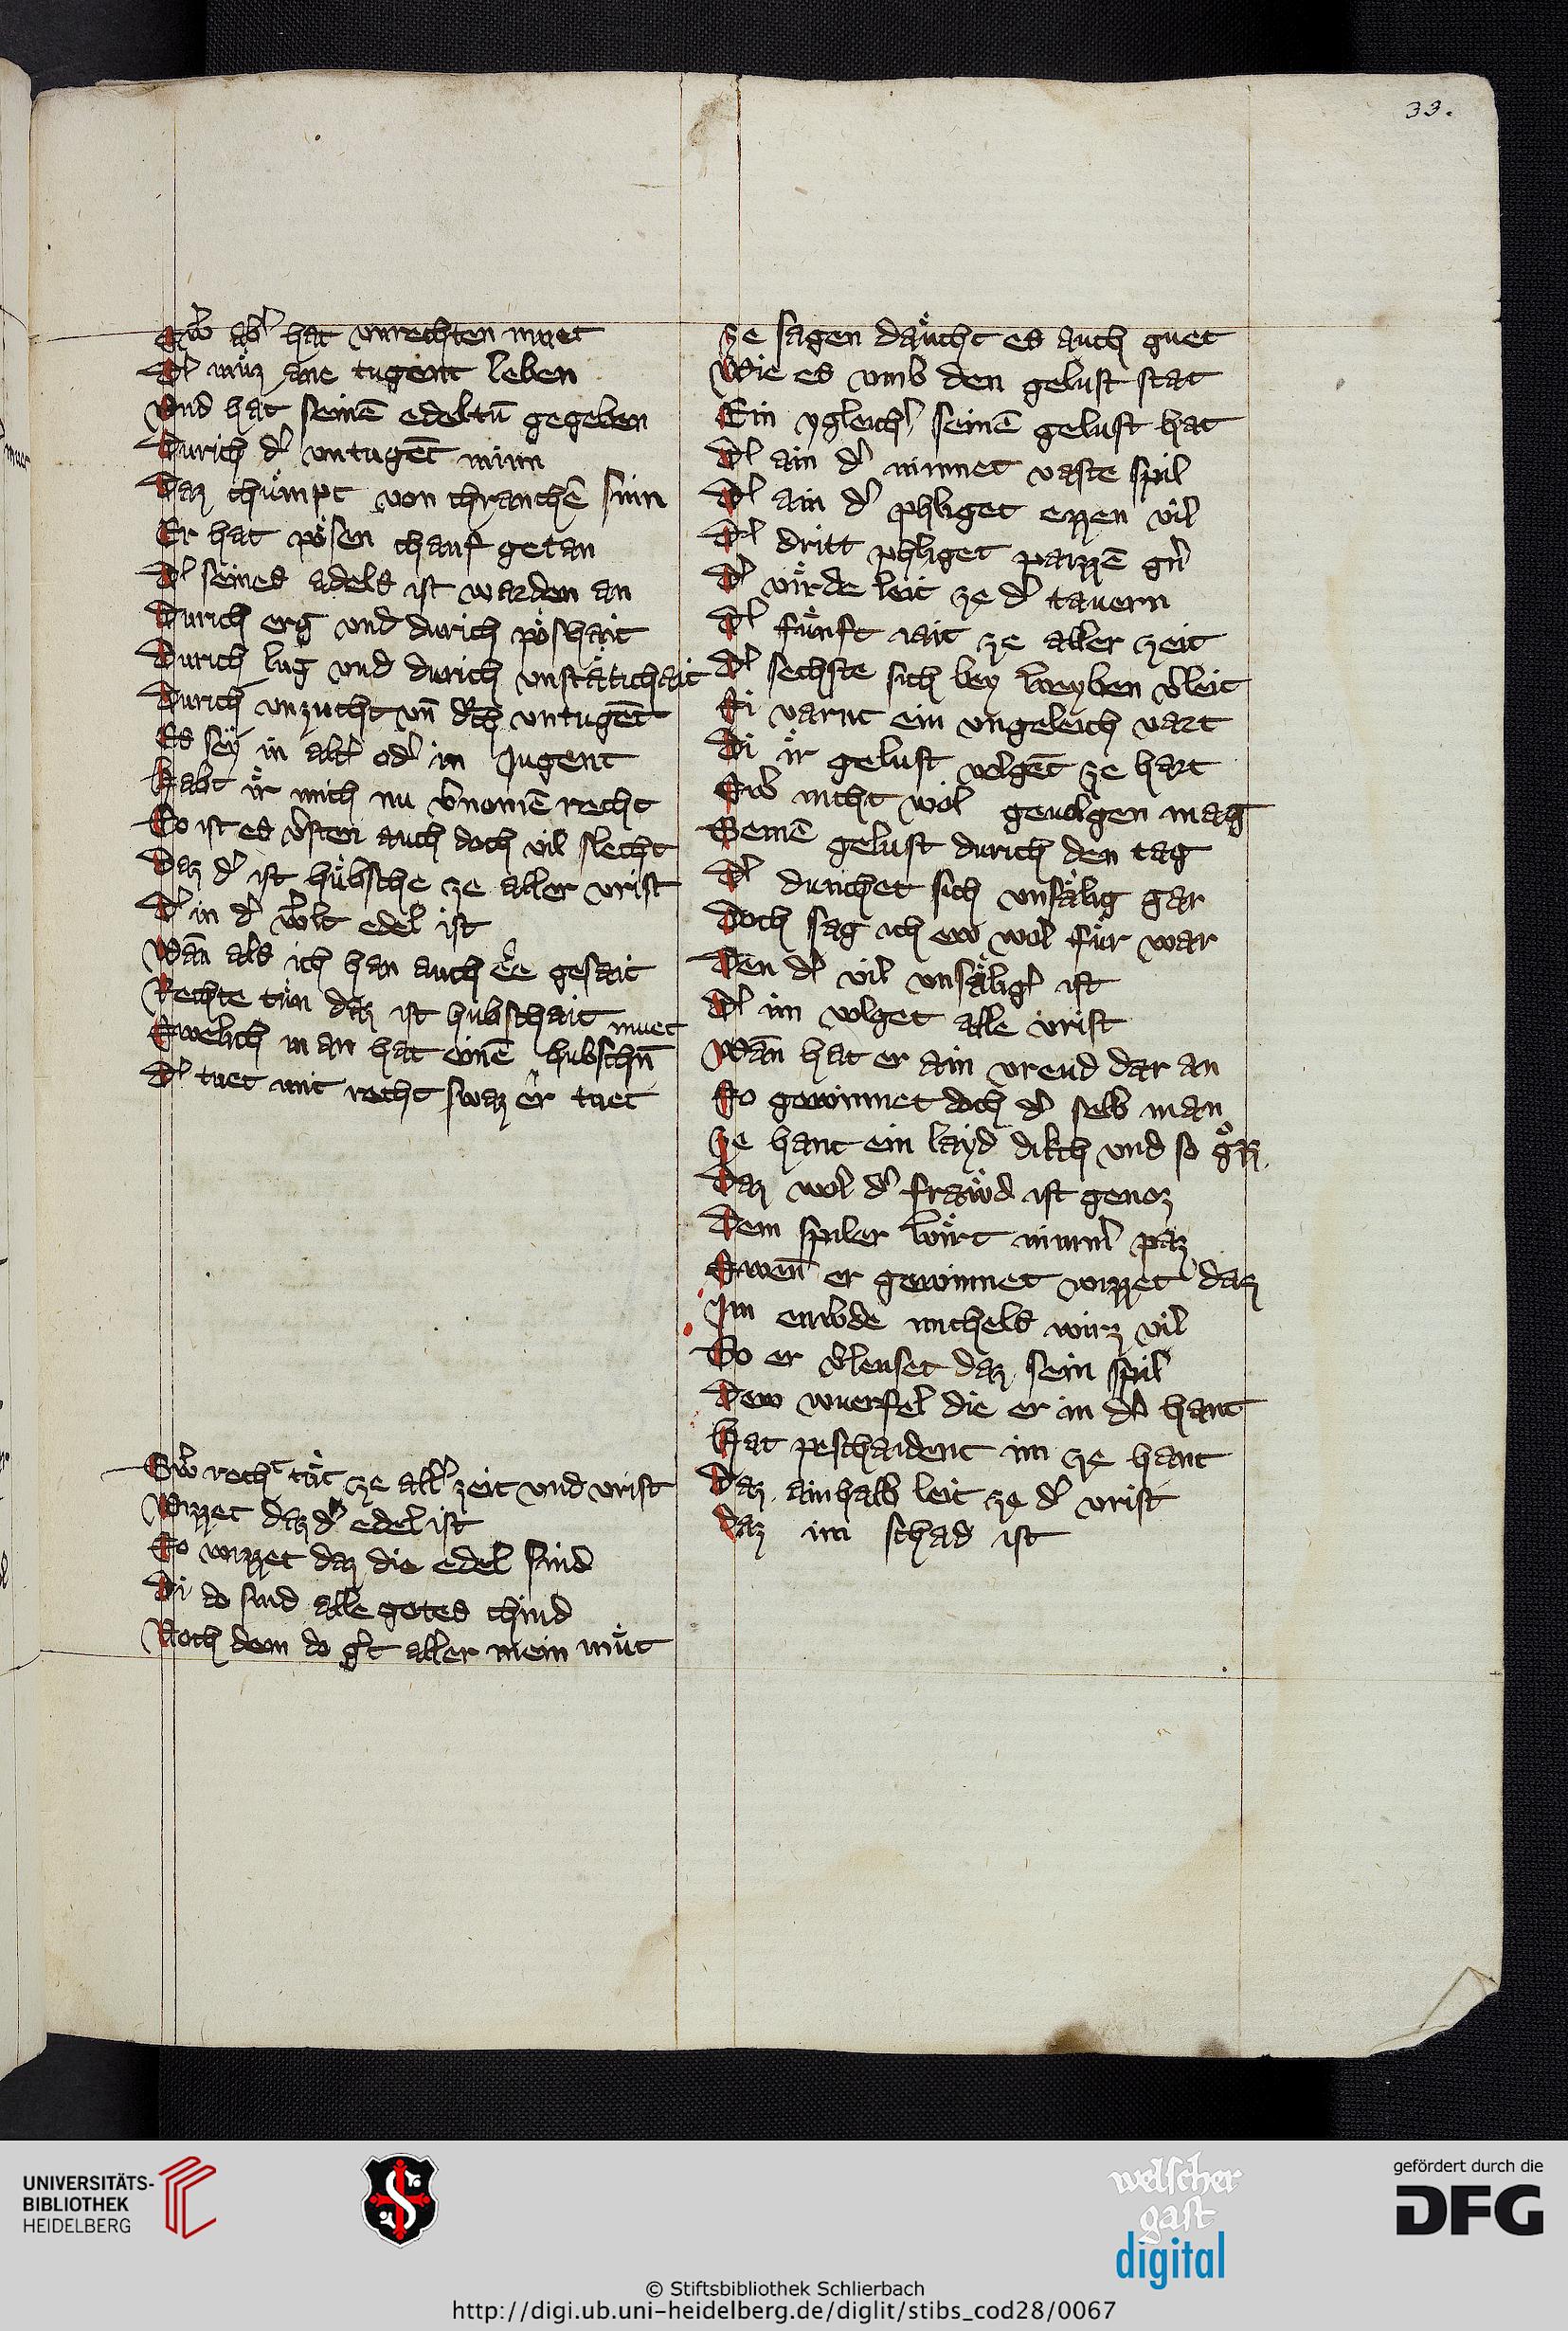 33.
Sw̄ ab̛ hat vnrechten muet
D̛ müz ane tugent leben
Vnd hat seinē edeltū gegeben
Durich d̛ vntugēt minn
Daz chümpt von chranchē sinn
Er hat pösen chauf getan
D̛ seines adels ist warden an
Durich erg vnd durich pöshait
Durich lug vnd durich vnstätichait
Durich vnzucht vn̄ dch vntugēt
Es sey in alt̛ od̛ in Jugent
Habt ir mich nu v̛nomē recht
So ist es v̛sten auch doch vil slecht
Daz d̛ ist hübsche ze aller vrist
D̛ in d̛ w̛lt edel ist
Wān als ich han auch ee gesait
Rechte tün daz ist hubschait
Swelich man hat einē hubschn̄ muet
D̛ tuet mit recht swaz er tuet
Sw̛ recht tüt ze all̛ zeit vnd vrist
Wizzet daz d̛ edel ist
So wizzet daz die edel sind
Di do sind alle gotes chind
Noch dem do g̛t aller mein müt
Ze sagen däucht es auch guet
Wie es vmb den gelust stat
Ein ygleich̛ seinē gelust hat
D̛ ain d̛ minnet vaste spil
D̛ ain d̛ phliget ezzen vil
D̛ dritt phliget pazzē g̛n
D̛ virde leit ze d̛ tauern
D̛ fünft iait ze aller zeit
D̛ sechste sich bey weyben v̛leit
Si varnt ein vngeleich vart
Di ir gelust volgēt ze hart
Sw̛ nicht wol geuolgen mag
Seinē gelust durich den tag
D̛ dunchet sich vnsälig gar
Doch sag ich ew wol für war
Den d̛ vil vnsälig̛ ist
D̛ im volget alle vrist
Wān hat er ain vreud dar an
So gewinnet doch d̛ selb man
Ze hant ein layd dikch vnd so groz
Daz wol d̛ fräwd ist genoz
Dem spiler wirt nimm̛ paz
Swen̄ er gewinnet wizzet daz
Im enw̛de michels wirz vil
So er v̛leuset daz sein spil
Dew wuerfel die er in d̛ hant
Hat peschaident im ze hant
Daz ainhalb leit ze d̛ vrist
daz im schad ist
UNIVERSITÄTS-
BIBLIOTHEK
HEIDELBERG
welscher
gast
digital
gefördert durch die
DFG
© Stiftsbibliothek Schlierbach
http://digi.ub.uni-heidelberg.de/diglit/stibs_cod28/0067